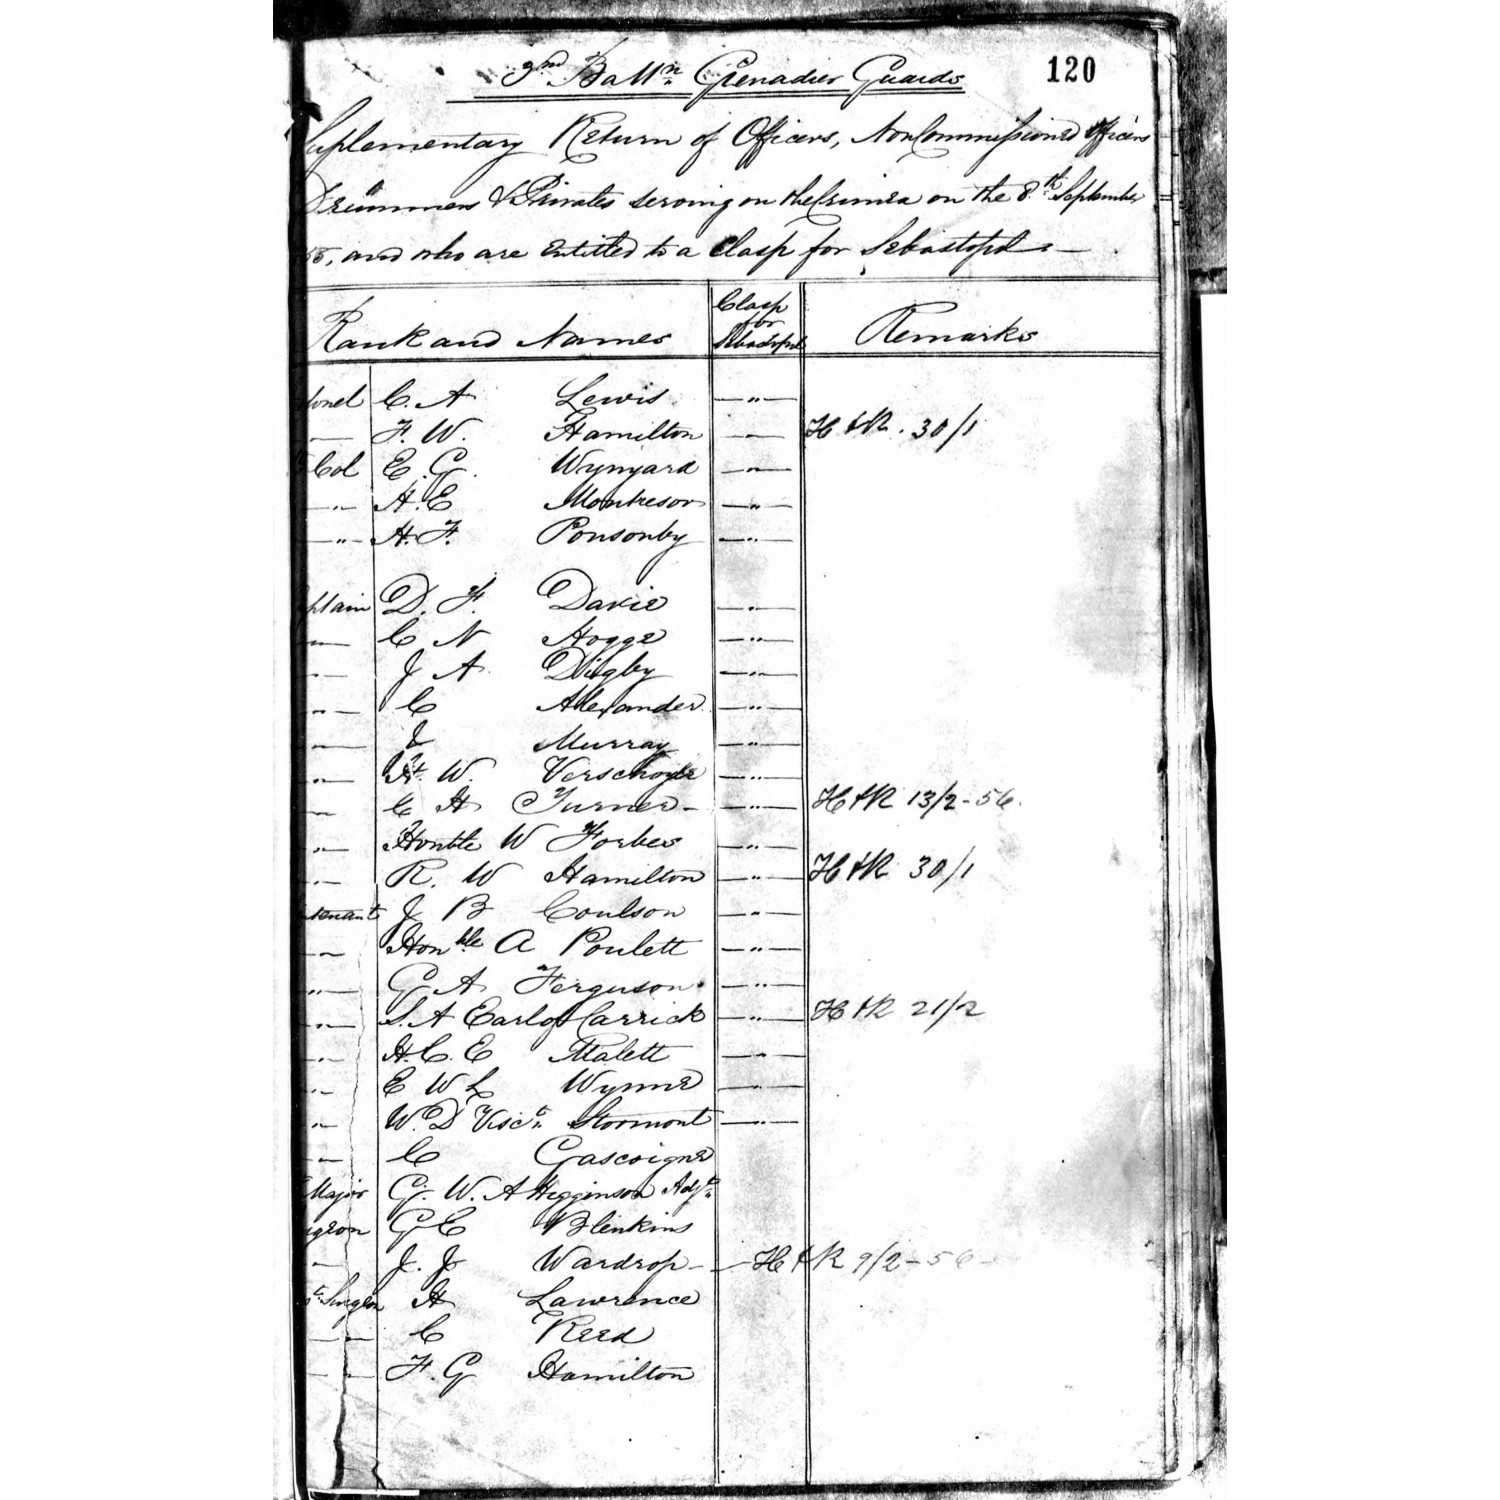 3rd Battn Grenadier Guards
120
Suplementary Return of Officers, Non Commissioned Officers
Drummers & Privates serving in the Crimea on the 8th September
55, and who are Entitled to a Clasp for Sebastopol
Rank and Names
Clasp for Sebastopol
Remarks
olonel C. A Lewis — " —
— F. W. Hamilton — H & R. 30/1
Col E. G. Wynyard — " —
— " — H. E Montresor — " —
— " — H. F. Ponsonby — " —
ptain D. F. Davie — " —
— C N Hogge — " —
— " — J A Digby — " —
— " — C Alexander — " —
— " — J Murray — " —
— " — H. W. Verschoyle — " —
— C H Turner — " — H & R 13/2 - 56
— " — Honble W Forbes — " —
— " — R. W Hamilton — " — H & R 30/1
utenant J B Coulson — " —
— " — Honble A Poulett — " —
— " — G A Ferguson — " —
— " — S. A Earl of Carrick — " — H & R 21/2
— " — H. C. E Malett — " —
— " — E W L Wynne — " —
— " — W. D Visct Stormont — " —
— " — C Gascoigne
Major G. W. A Higginson Adjt
rgeon G C Blenkins
— " — J. J. Wardrop — H & R 9/2 - 56
t Surgeon H Lawrence
— " — C Reed
— " — F. G Hamilton